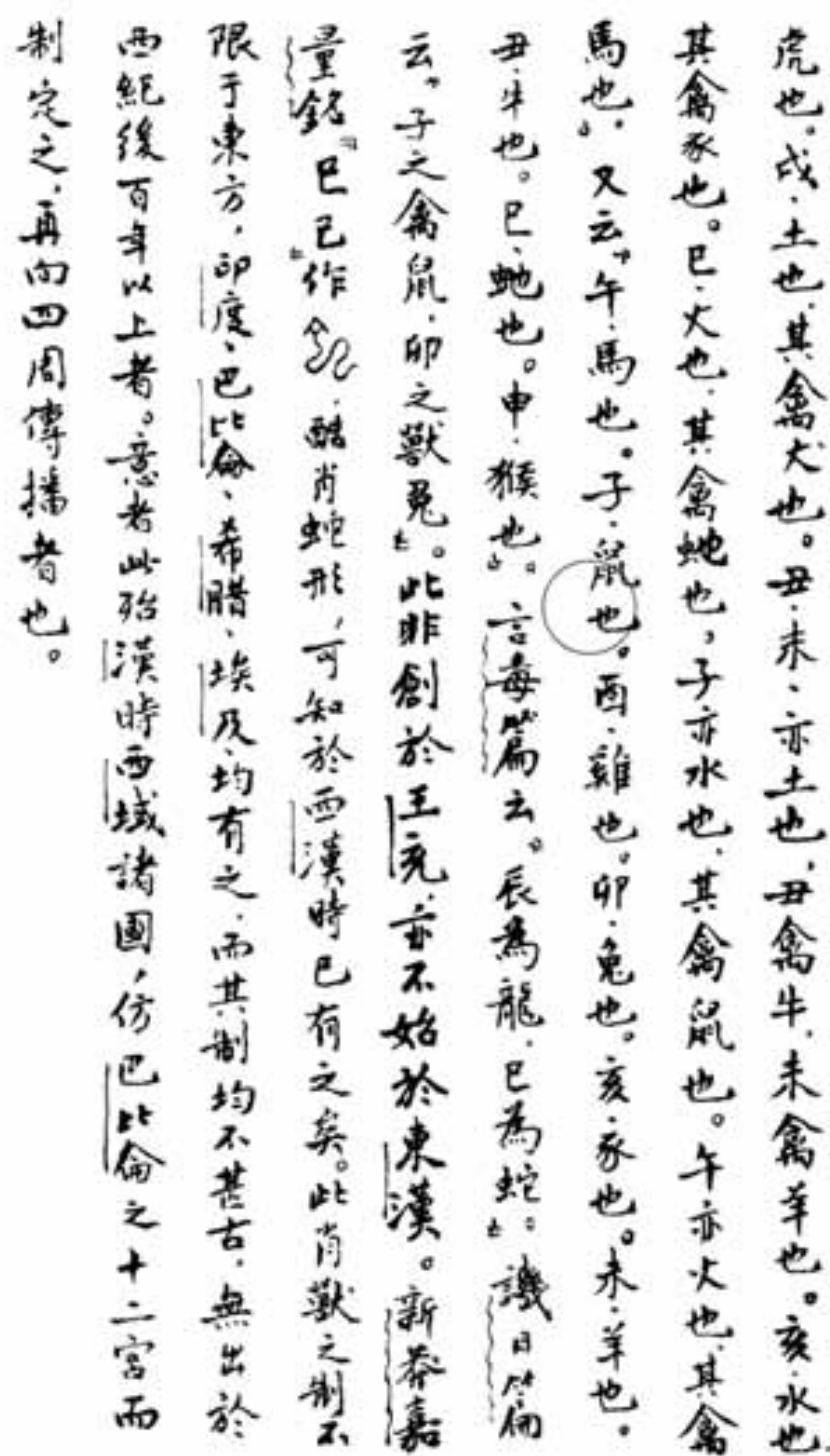 虎也。戌、土也、其禽犬也。丑、未、亦土也、丑禽牛、未禽羊也。亥、水也
其禽豕也。巳、火也、其禽虵也、子亦水也、其禽鼠也。午亦火也、其禽
馬也』。又云『午、馬也。子、鼠也。酉、雞也。卯、兔也。亥、豕也。未、羊也。
丑、牛也。巳、虵也。申、猴也』。言毒篇云。辰為龍、巳為蛇。』譏日篇
云『子之禽鼠、卯之獸兔』。此非創於王充、亦不始於東漢。新莽嘉
量銘『巳』作、酷肖蛇形、可知於西漢時已有之矣。此肖獸之制不
限于東方、印度、巴比倫、希腊、埃及、均有之、而其制均不甚古、無出於
西紀後百年以上者。意者此殆漢時西域諸國、仿巴比倫之十二宮而
制定之、再向四周傳播者也。